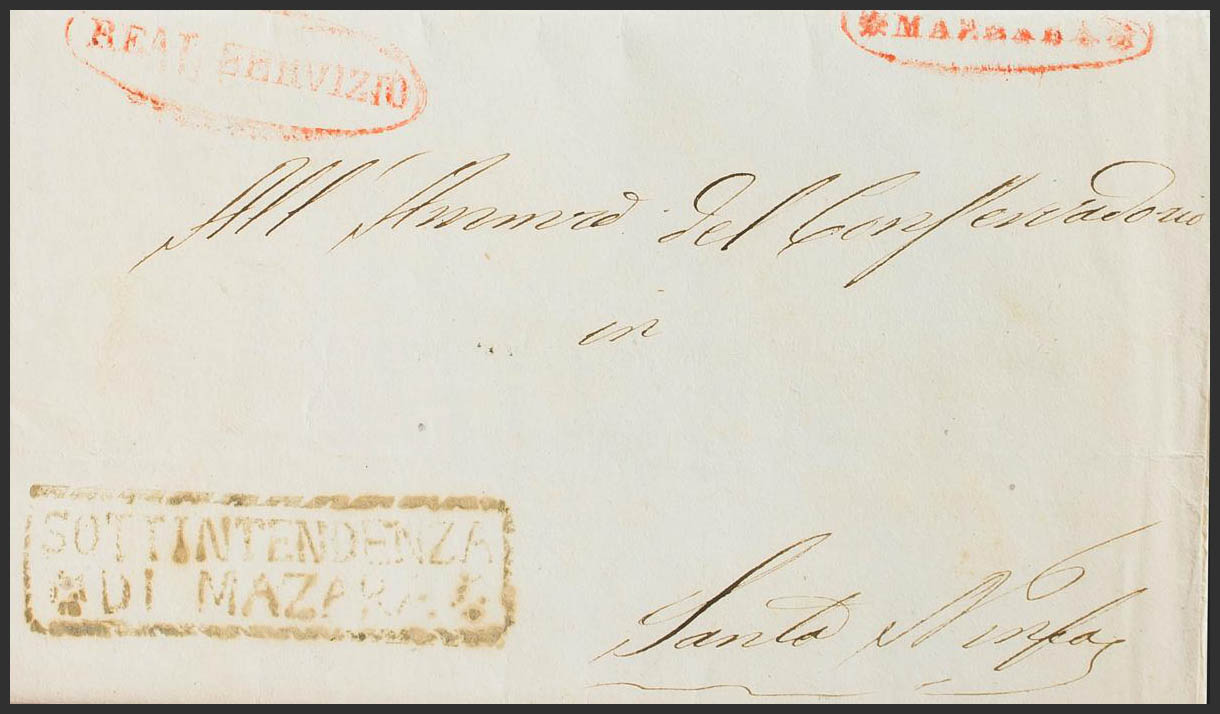 REAL SERVIZIO
MARSALA
All' Ammrē del Conservadorio
in
SOTTINTENDENZA
DI MAZARA
Santa Ninfa